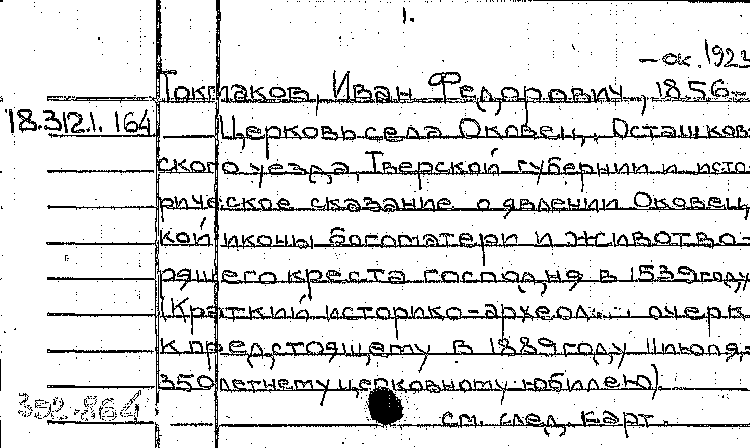 1.
– ок. 1923
Токмаков, Иван Федорович, 1856-
18.312.1.164
Церковь села Оковец, Осташков-
ского уезда, Тверской губернии и исто-
рическое сказание о явлении Оковец-
кой иконы богоматери и животво-
рящего креста господня в 1539 году
(Краткий историко-археол... очерк
к предстоящему в 1889 году 11 июля,
350летнему церковному юбилею)
352-864
см. след. карт.